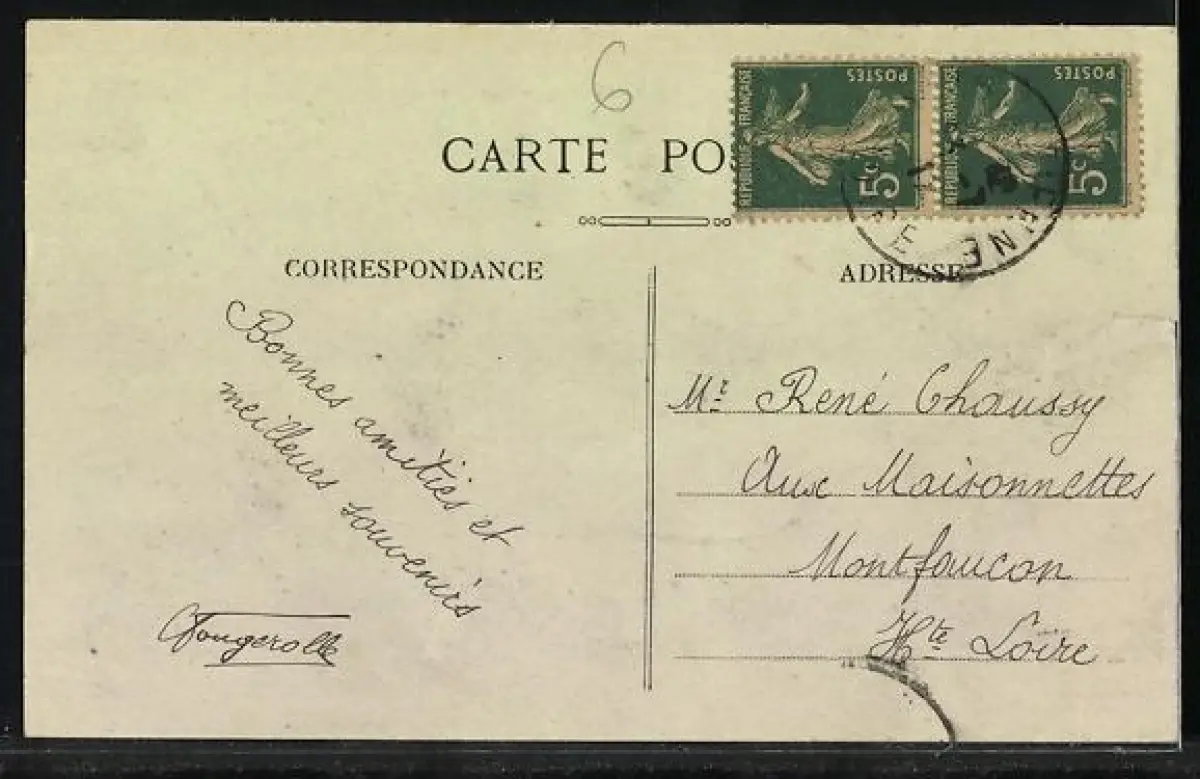 6
CARTE PO
POSTES
RÉPUBLIQUE FRANÇAISE
5c
POSTES
RÉPUBLIQUE FRANÇAISE
5c
CORRESPONDANCE
ADRESSE
Bonnes amitiés et
meilleurs souvenirs
Fougerolle
Mr René Chaussy
Aux Maisonnettes
Montfaucon
Hte Loire